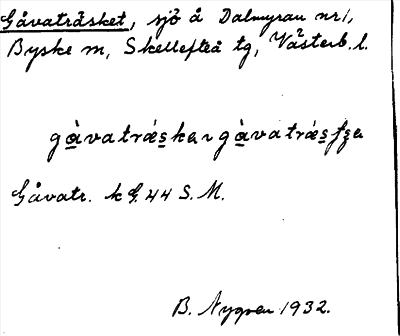 Gåvaträsket, sjö å Dalmyran nr 1,
Byske m, Skellefteå tg, Västerb. l.
gàvatrǽska ~ gàvatrǽsʃʒa
Gåvatr. k G. 44 S. M.
B. Nygren 1932.